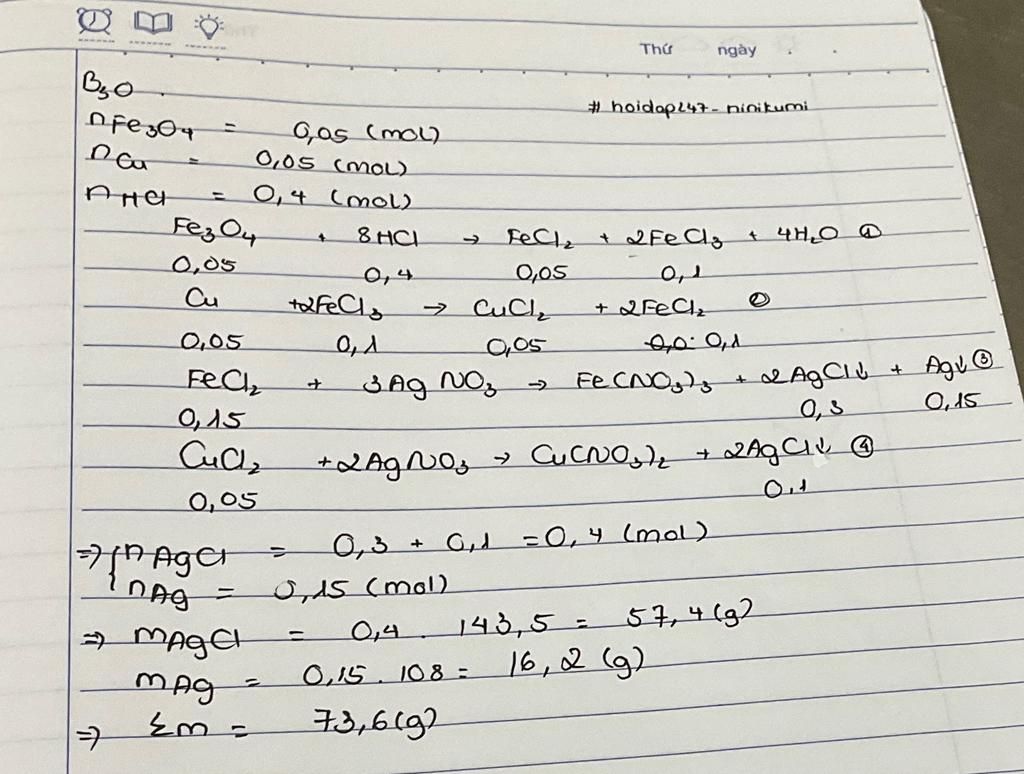 Thứ ngày
B30.
# hoidap247-ninikumi
nFe3O4 = 0,05 (mol)
nCu = 0,05 (mol)
nHCl = 0,4 (mol)
Fe3O4 + 8HCl → FeCl2 + 2FeCl3 + 4H2O ①
0,05 0,4 0,05 0,1
Cu +2FeCl3 → CuCl2 + 2FeCl2 ②
0,05 0,1 0,05 0,1
FeCl2 + 3AgNO3 → Fe(NO3)3 + 2AgCl↓ + Ag↓ ③
0,15 0,3 0,15
CuCl2 +2AgNO3 → Cu(NO3)2 + 2AgCl↓ ④
0,05 0,1
⇒ { nAgCl = 0,3 + 0,1 = 0,4 (mol)
nAg = 0,15 (mol)
⇒ mAgCl = 0,4 . 143,5 = 57,4 (g)
mAg = 0,15 . 108 = 16,2 (g)
⇒ Σm = 73,6 (g)